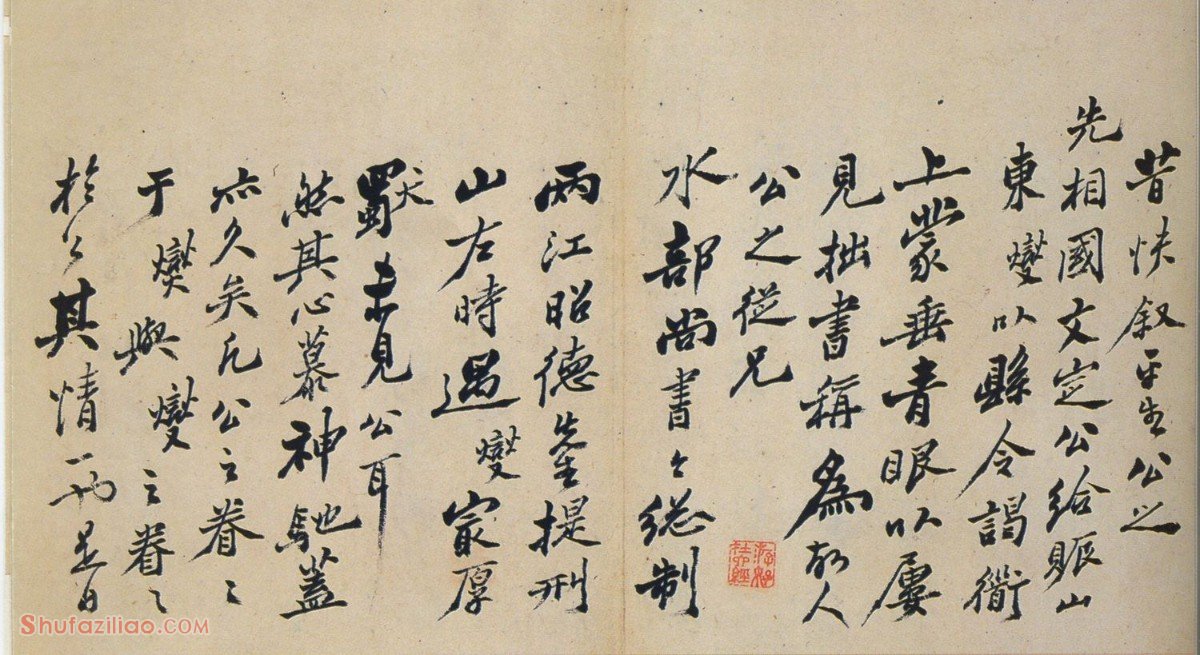 昔快叙平生公之
先相國文定公給賑山
東燮以縣令謁衜
上蒙垂青眼以屢
見拙書稱為故人
公之從兄
水部尚書々總制
兩江昭德先生提刑
山左時過燮家厚
獨未見公耳
然其心慕神馳蓋
亦久矣凡公之眷々
于燮與燮之眷々
於公其情一也是日
Shufaziliao.COM